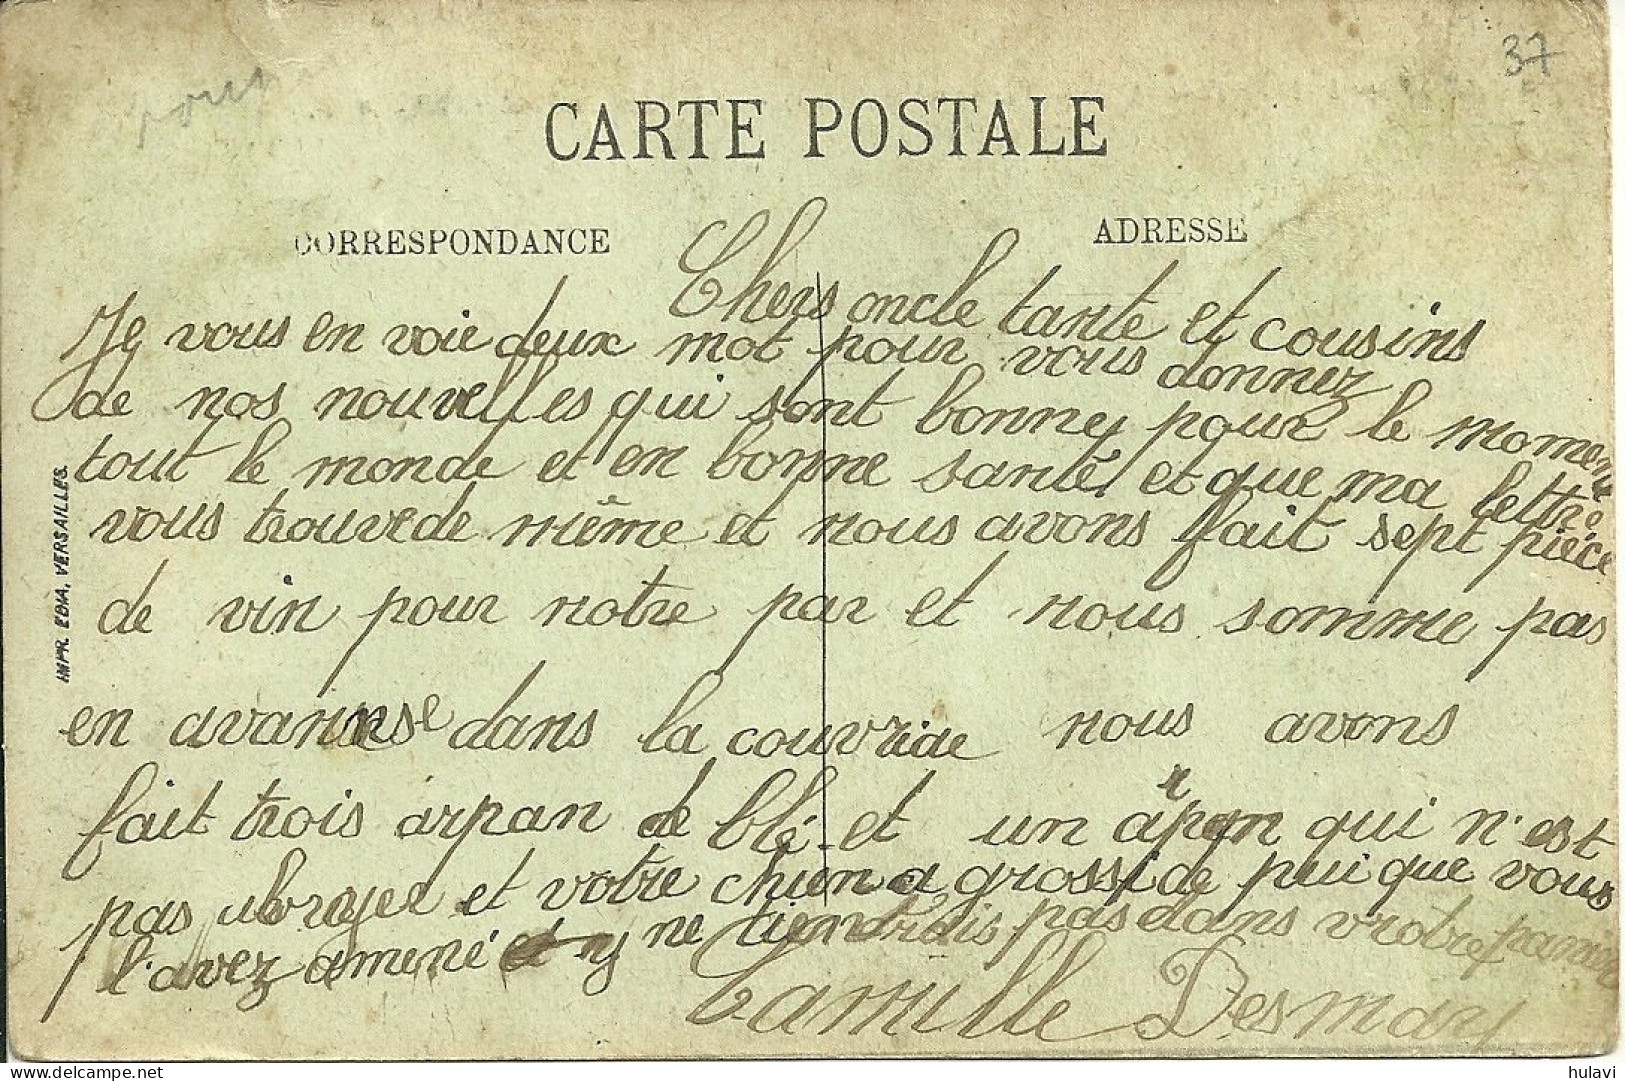 37
CARTE POSTALE
CORRESPONDANCE
ADRESSE
Chers oncle tante et cousins
Je vous en voie deux mot pour vous donnez
de nos nouvelles qui sont bonne pour le moment
tout le monde et en bonne santé et que ma lettre
vous trouve de même et nous avons fait sept pièce
de vin pour notre par et nous somme pas
en avanse dans la couvriae nous avons
fait trois arpan de blé et un arpan qui n'est
pas ubrayer et votre chien a grossi de pui que vous
l'avez amené et y ne tiendrais pas dans votre panier
Camille Desmary
IMPR. EDIA, VERSAILLES.
hulavi